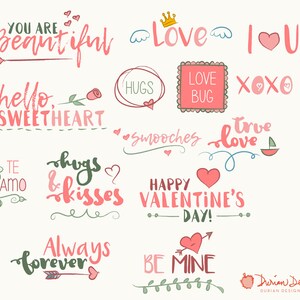 YOU ARE
Beautiful
Love
I U
HUGS
LOVE
BUG
XOXO
hello,
SWEETHEART
smooches
true
love
TE
AMO
hugs
& kisses
HAPPY
VALENTINE'S
DAY!
Always
forever
BE MINE